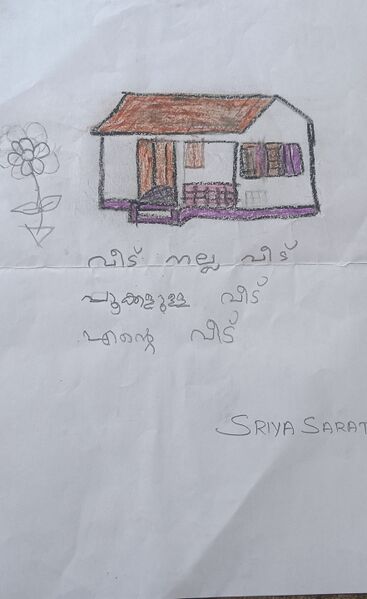 വീട് നല്ല വീട്
പൂക്കളുള്ള വീട്
എന്റെ വീട്
SRIYA SARAT